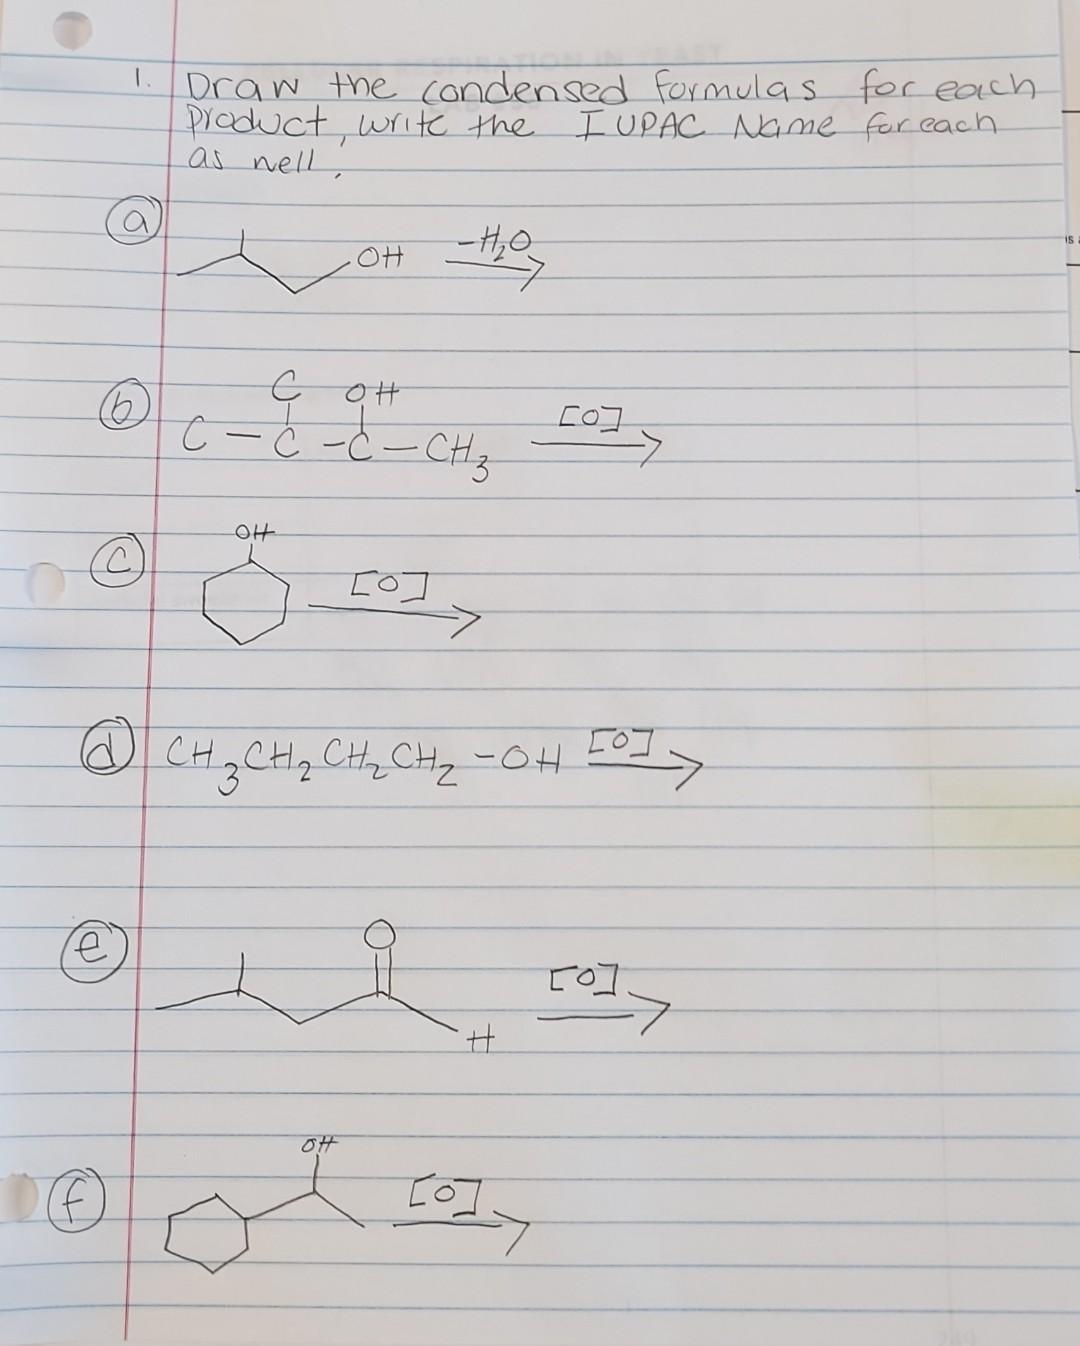 1. Draw the condensed formulas for each
product, write the IUPAC Name for each
as well.
a
OH -H₂O
b
C OH
C - C - C - CH₃ [O]
c
OH
[O]
d CH₃CH₂CH₂CH₂-OH [O]
e
O
[O]
H
f
OH
[O]